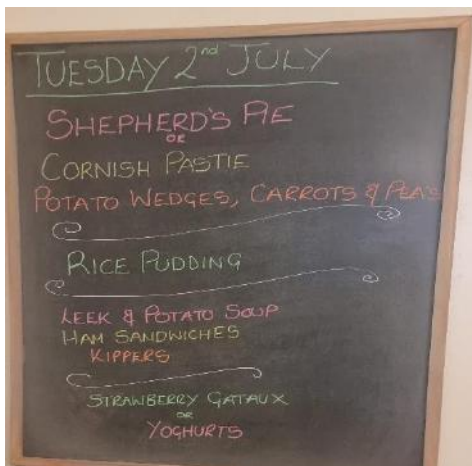 TUESDAY 2nd JULY
SHEPHERD'S PIE
OR
CORNISH PASTIE
POTATO WEDGES, CARROTS & PEA'S
RICE PUDDING
LEEK & POTATO SOUP
HAM SANDWICHES
KIPPERS
STRAWBERRY GATAUX
OR
YOGHURTS